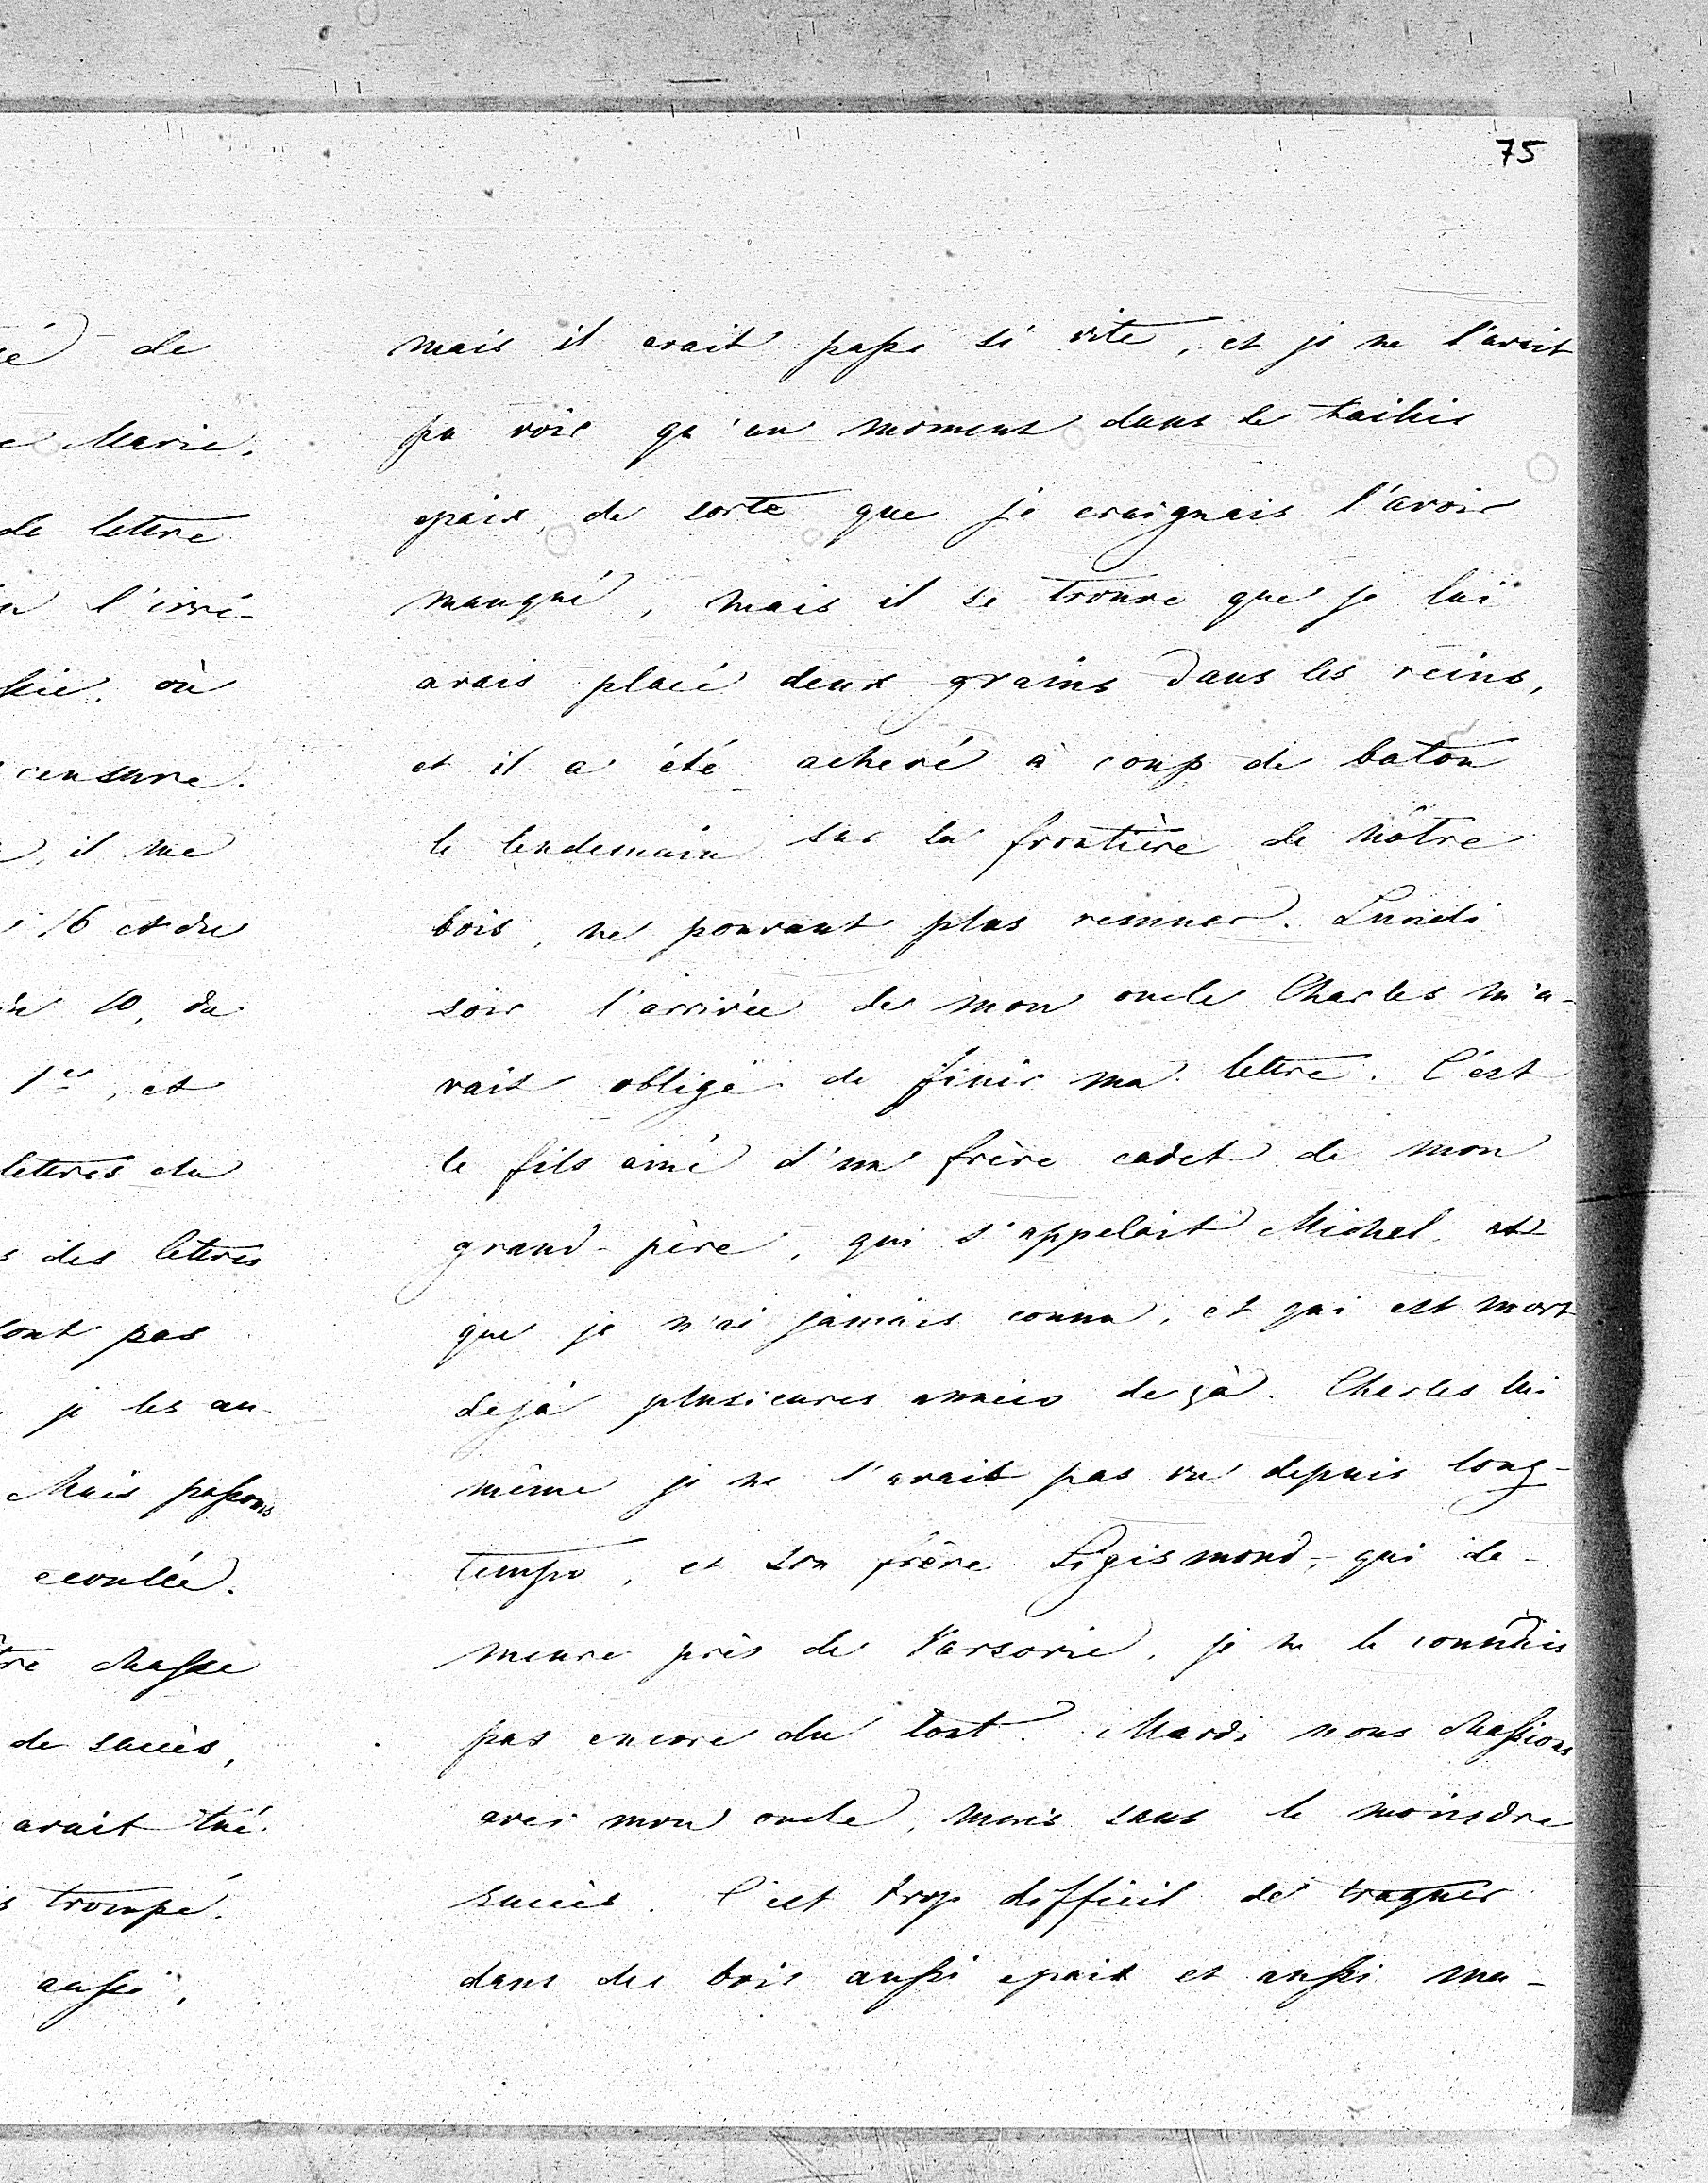 75
sé de
e Marie,
de lettre
l'irré-
où
censure.
, il me
16 et du
10, du
1er, et
lettres du
s des lettres
sont pas
je les au-
Mais passons
ecoulée.
tre chasse
de succès,
avait tué.
s trompé.
aussi,
mais il avait passé si vite, et je ne l'avait
pu voir qu'un moment dans le tailis
epais, de sorte que je craignais l'avoir
manqué, mais il se trouve que je lui
avais placé deux grains dans les reins,
et il a été achevé à coup de baton
le lendemain sur la frontière de nôtre
bois, ne pouvant plus remuer. Lundi
soir l'arrivée de mon oncle Charles m'a-
vait obligé de finir ma lettre. C'est
le fils ainé d'un frère cadet de mon
grand-père, qui s'appelait Michel, et
que je n'ai jamais connu, et qui est mort
dejà plusieures années dejà. Charles lui
même je ne l'avait pas vu depuis long-
temps, et son frère Sigismond, qui de-
meure près de Varsovie, je ne le connais
pas encore du tout. Mardi nous chassions
avec mon oncle, mais sans le moindre
succès. C'est trop difficil de traquer
dans des bois aussi epais et aussi ma-